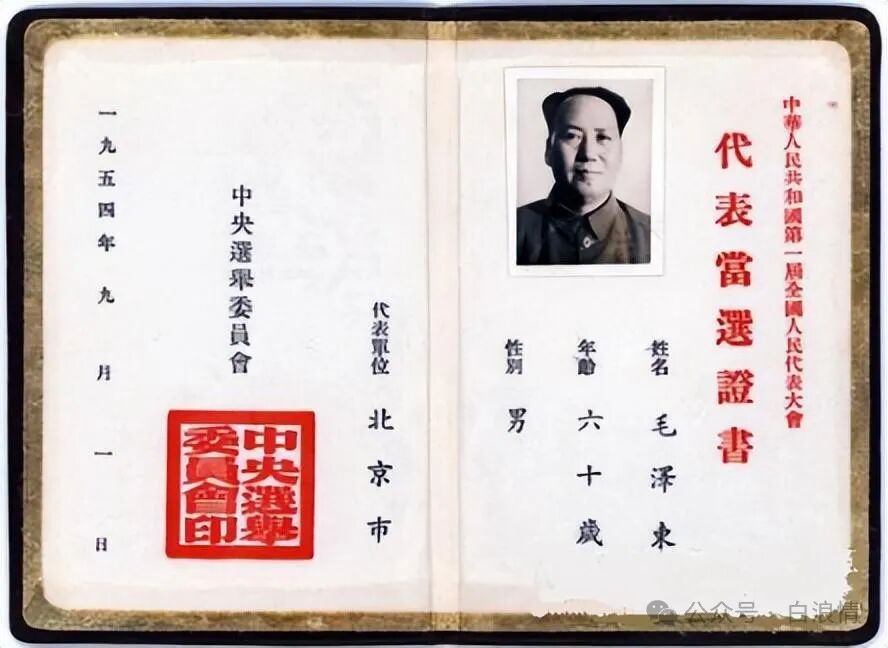 中華人民共和國第一屆全國人民代表大會
代表當選證書
姓名 毛澤東
年齡 六十歲
性別 男
代表單位 北京市
中央選舉委員會
中央選舉
委員會印
一九五四年九月一日
公众号 · 白浪情